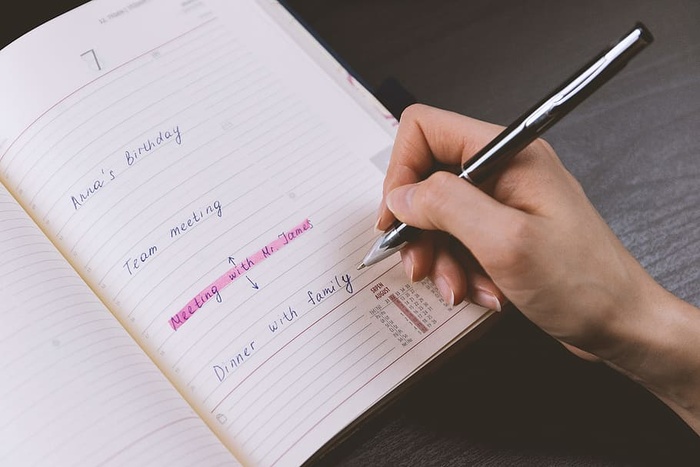 7
Anna's Birthday
Team meeting
Meeting with Mr. James
Dinner with family
SRPEN
AUGUST